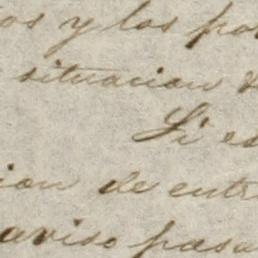 os y los po
situacion d
Si es
ion de entr
aviso pasa